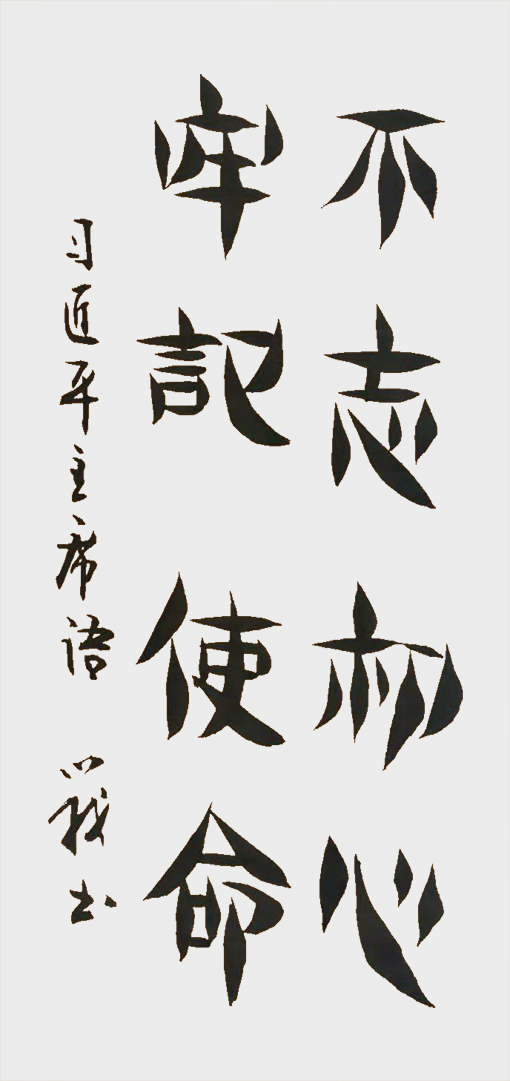 不志初心
牢記使命
习近平主席语 书